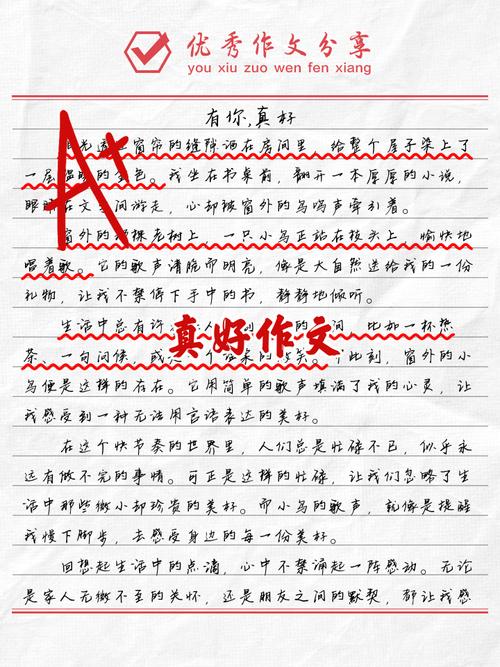 优秀作文分享
you xiu zuo wen fen xiang
有你，真好
A+
光透过窗帘的缝隙洒在房间里，给整个屋子染上了
一层的金色。我坐在书桌前，翻开一本厚厚的小说，
眼睛在文间游走，心却被窗外的鸟鸣声牵引着。
窗外的棵老树上，一只小鸟正站在枝头上，愉快地
唱着歌。它的歌声清脆而明亮，像是大自然送给我的一份
礼物，让我不禁停下手中的书，静静地倾听。
生活中总有许人间，比如一杯热
真好作文
茶、一句问候，或个笑。此刻，窗外的小
鸟便是这样的存在。它用简单的歌声填满了我的心灵，让
我感受到一种无法用言语表达的美好。
在这个快节奏的世界里，人们总是忙碌不已，似乎永
远有做不完的事情。可正是这样的忙碌，让我们忽略了生
活中那些微小却珍贵的美好。而小鸟的歌声，就像是提醒
我慢下脚步，去感受身边的每一份美好。
回想起生活中的点滴，心中不禁涌起一阵感动。无论
是家人无微不至的关怀，还是朋友之间的默契，都让我感